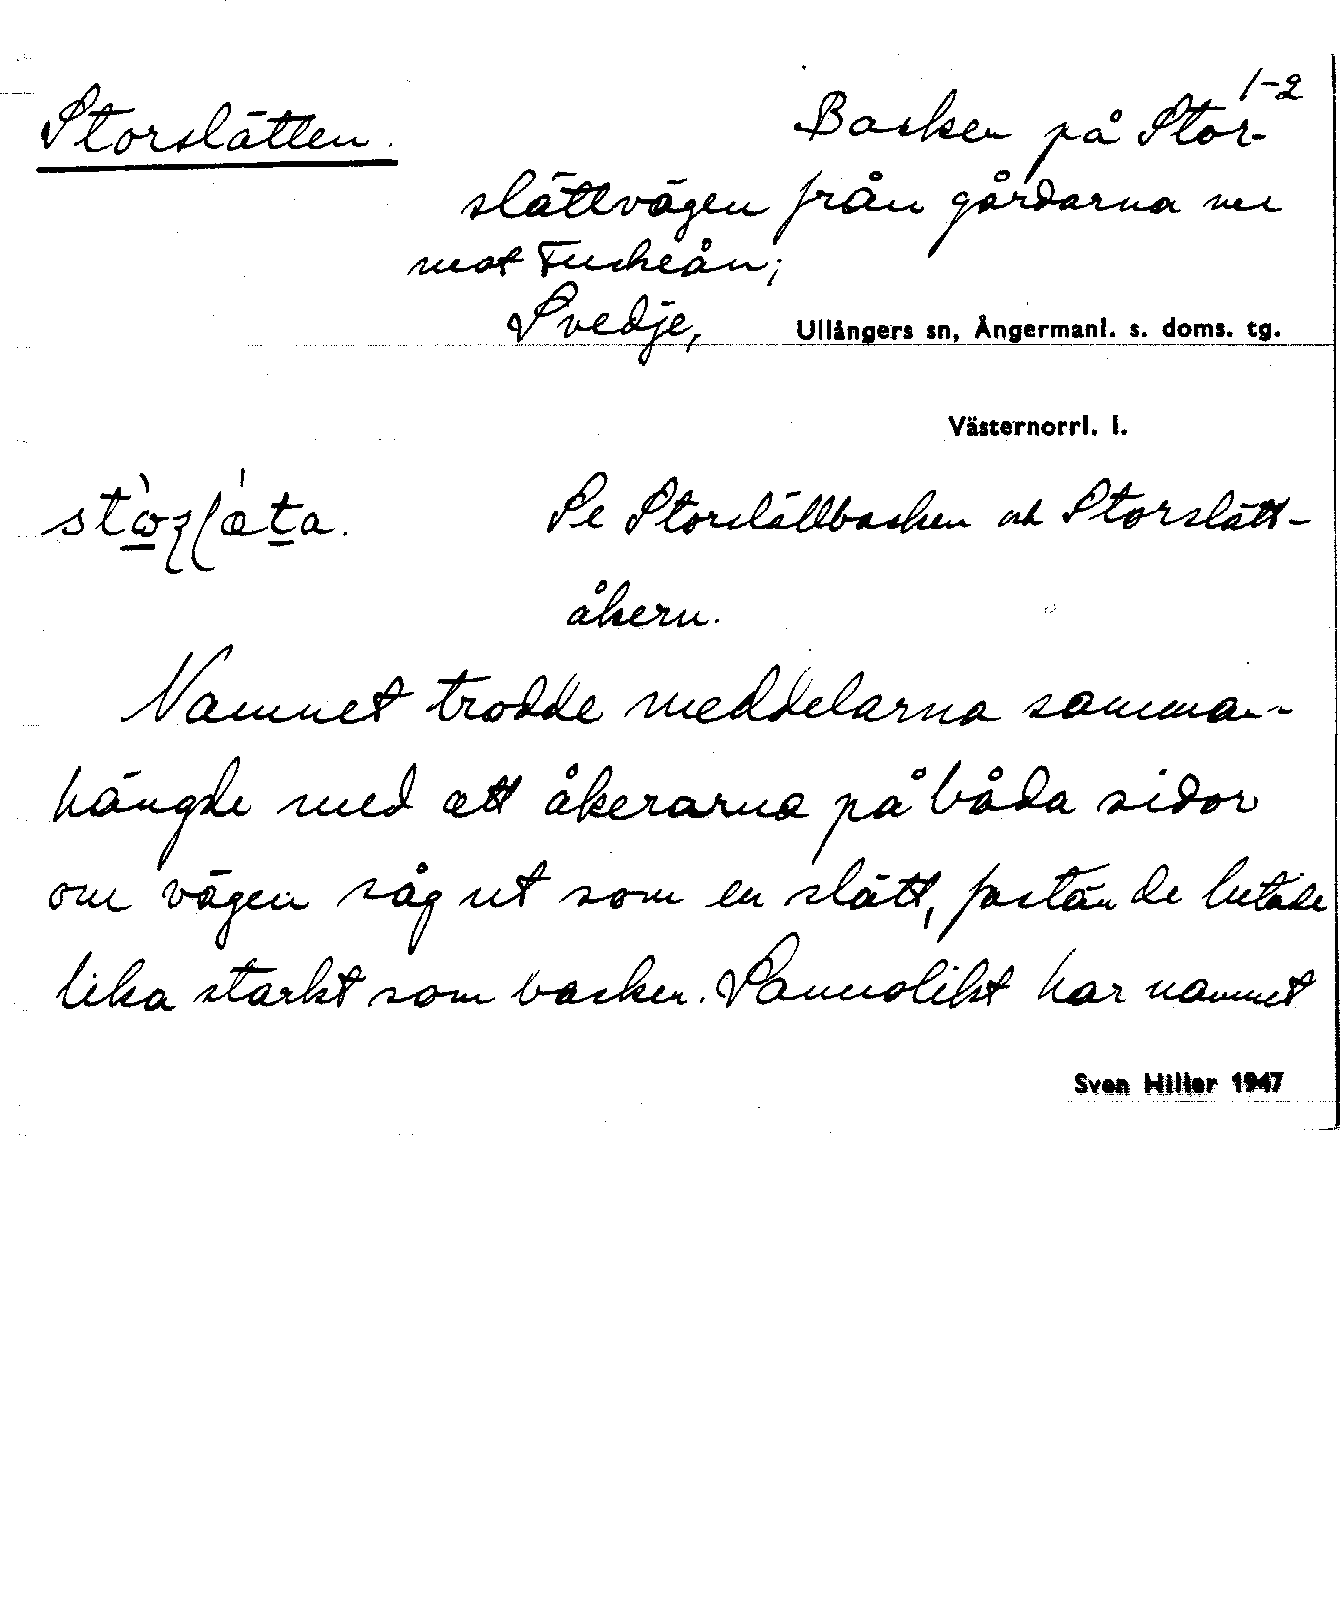 1-2
Storslätten.
Backen på Stor-
slättvägen från gårdarna ner
mot Fuskeån;
Svedje, Ullångers sn, Ångermanl. s. doms. tg.
Västernorrl. l.
Se Storslättbacken och Storslätt-
åkern.
Namnet trodde meddelarna samman-
hängde med att åkerarna på båda sidor
om vägen såg ut som en slätt, fastän de lutade
lika starkt som backen. Sannolikt har namnet
Sven Hiller 1947